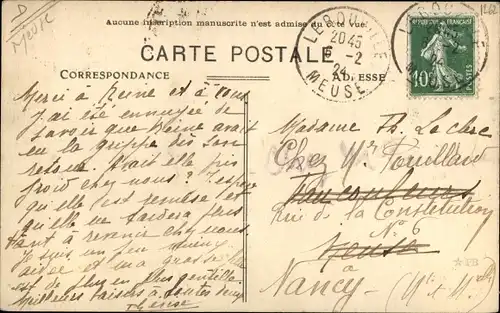 Meuse
Aucune inscription manuscrite n'est admise du côté vue.
CARTE POSTALE
CORRESPONDANCE
ADRESSE
LEROUVILLE
20 45
6 - 2
24
MEUSE
REPUBLIQUE FRANÇAISE
10
POSTES
Merci à Reine et à vous
J'ai été ennuyée de
savoir que Reine avait
eu la grippe dès son
retour. Avait elle pris
froid chez nous? J'espère
qu'elle est remise et
qu'elle ne tardera plus
tant à revenir chez nous.
Je suis un peu
et ma
est de plus en plus gentille.
Meilleurs baisers à toutes deux
Madame Th. Leclerc
Chez Mr
Vaucouleurs
Rue de la Constitution
No 6
Meuse
à
Nancy (Mthe et Mlle)